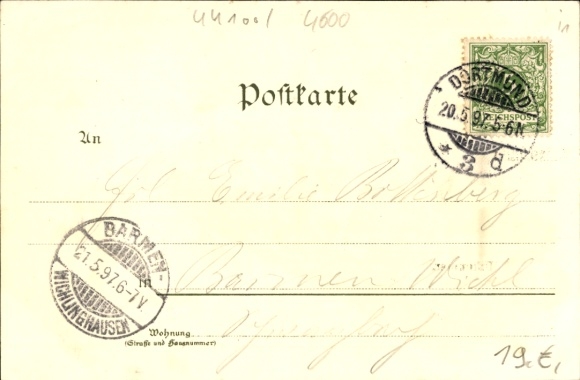 441001 4600
Postkarte
DORTMUND
20.5.97.5-6N.
* 3 d
REICHSPOST
An
Frl Emilie
BARMEN-
21.5.97.6-7V.
WICHLINGHAUSEN
in Barmen Wichl
Wohnung
(Straße und Hausnummer)
19,€,